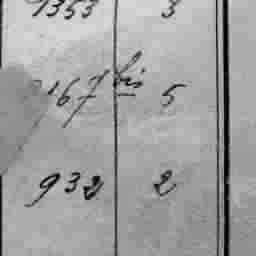 9353 3
167 bis 5
932 2